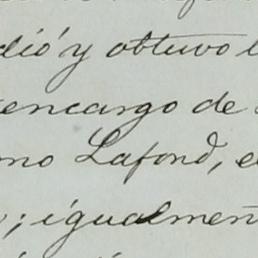 dió y obtuvo l
encargo de
mo Lafond, e
; igualmen